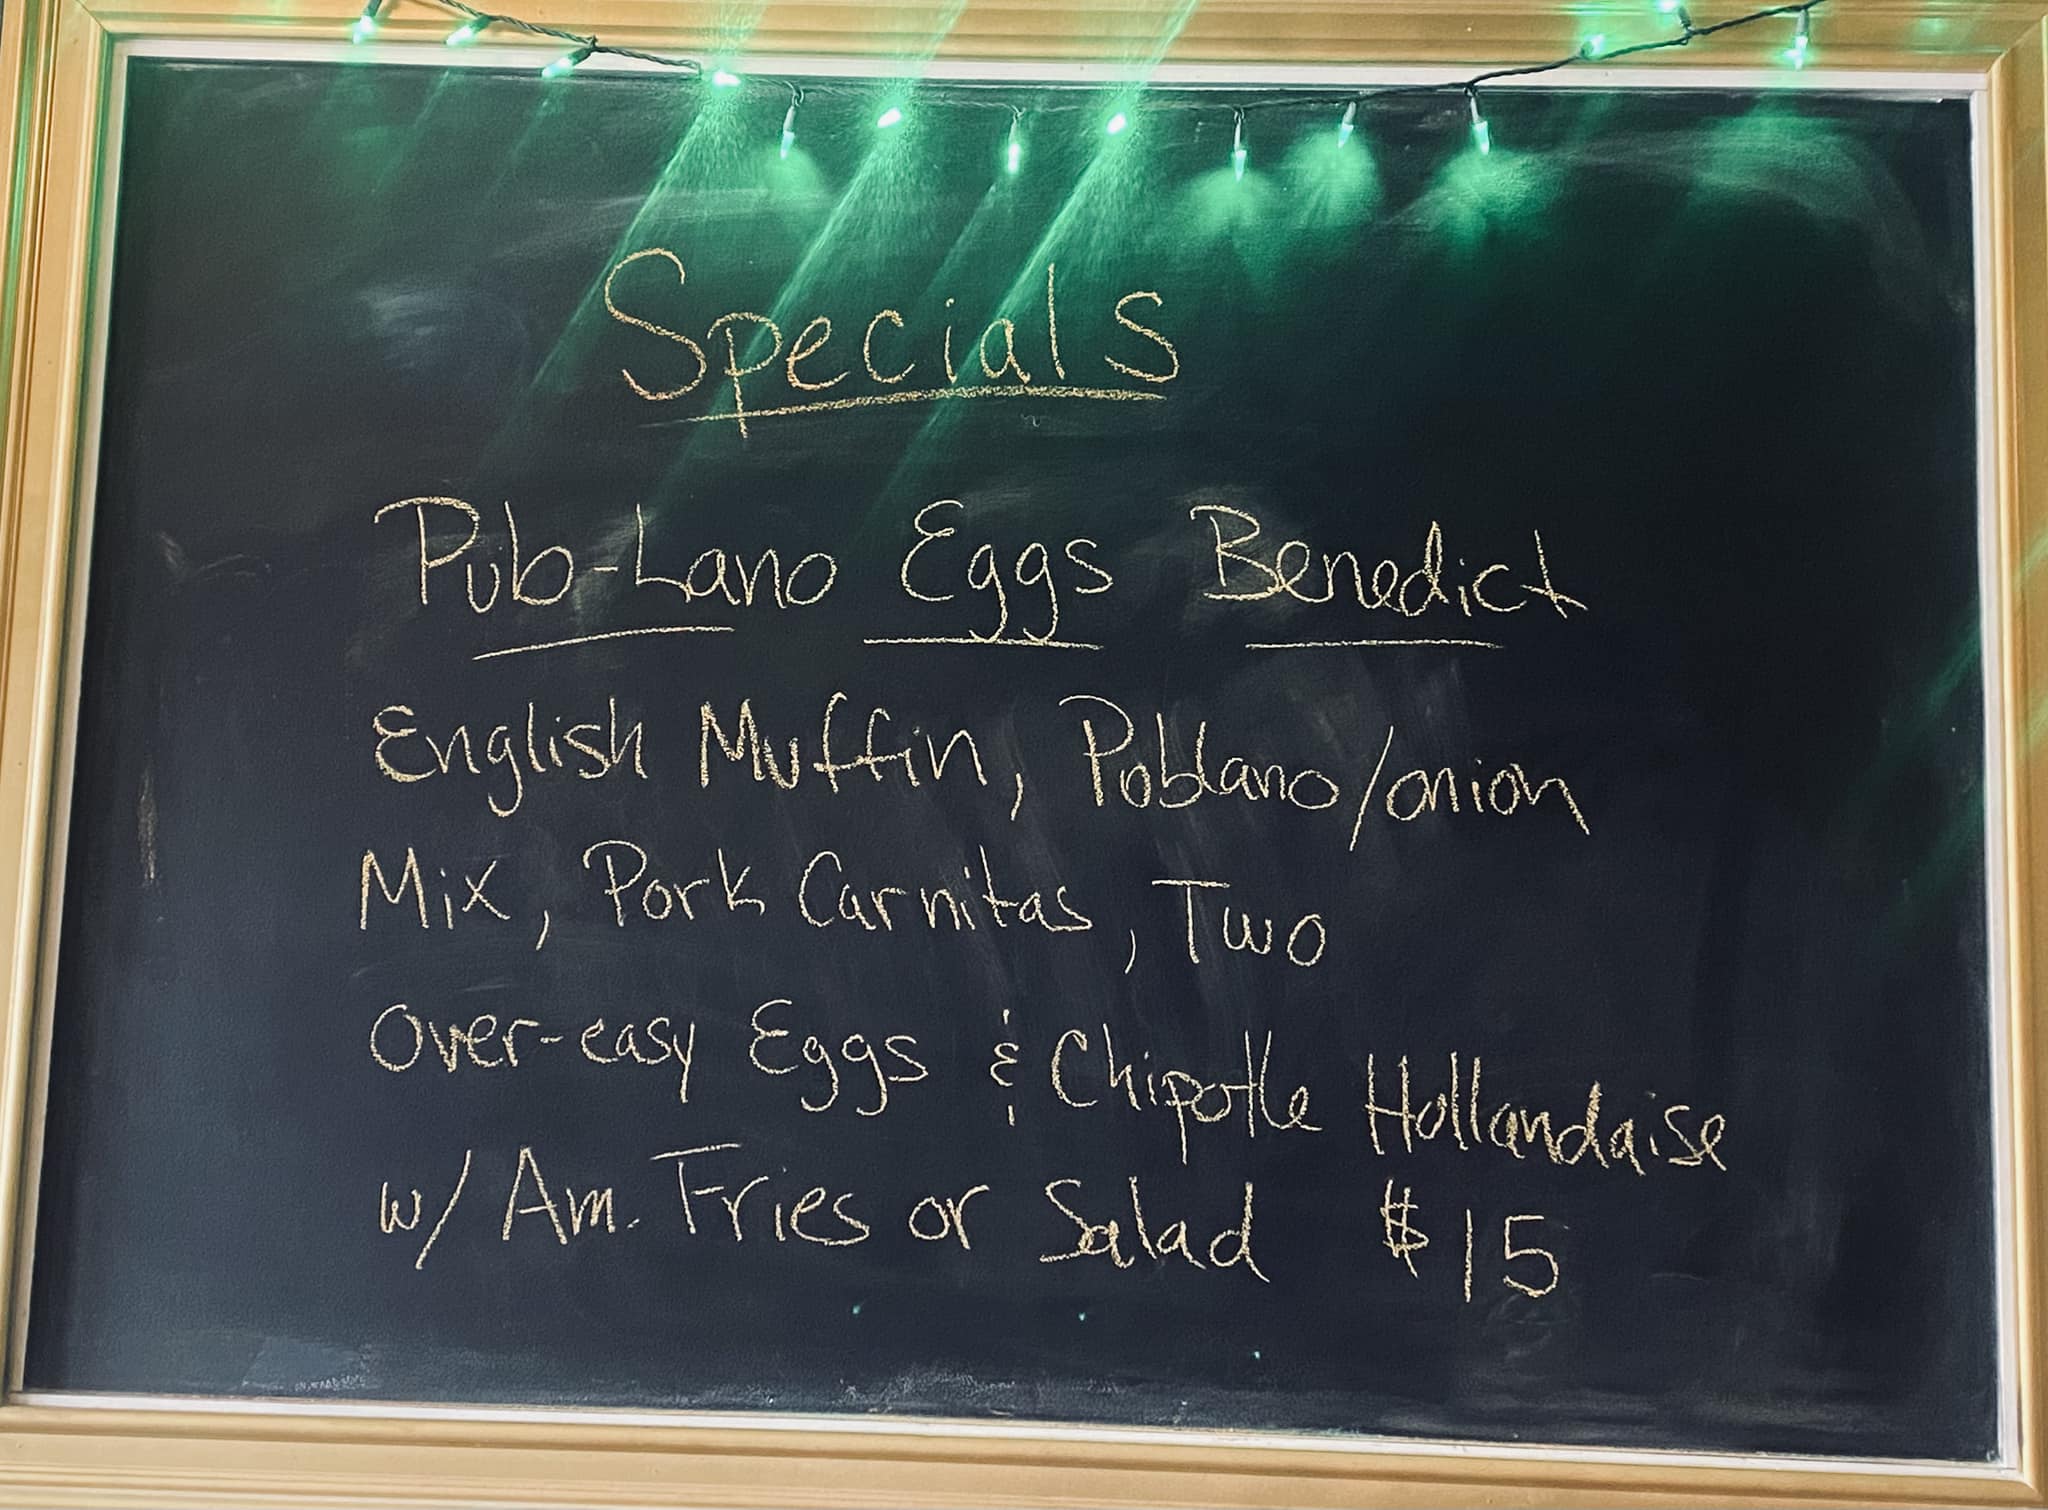 Specials
Pub-Lano Eggs Benedict
English Muffin, Poblano/onion
Mix, Pork Carnitas, Two
Over-easy Eggs & Chipotle Hollandaise
w/ Am. Fries or Salad $15